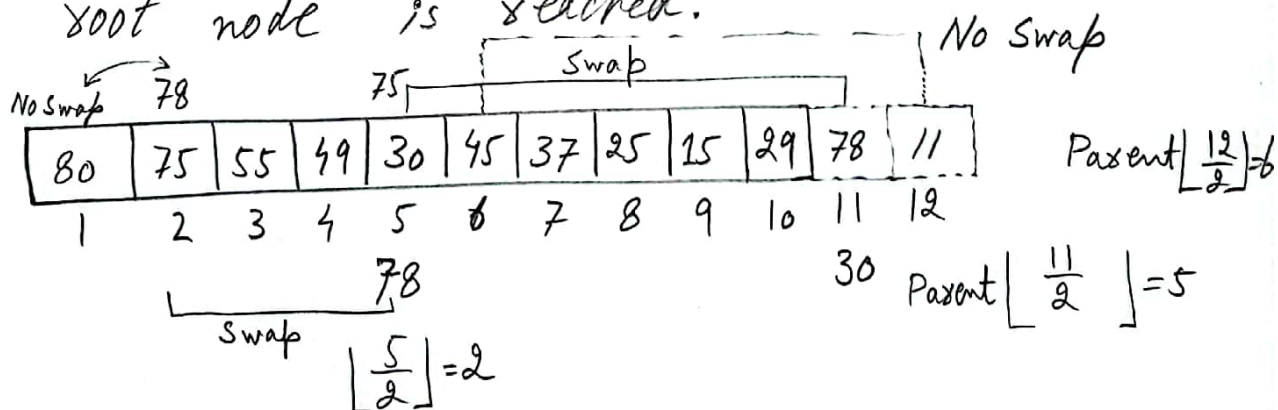 root node is reached.
No Swap
Swap
No Swap 78 75
80 75 55 49 30 45 37 25 15 29 78 11
Parent⌊12/2⌋=6
1 2 3 4 5 6 7 8 9 10 11 12
78 30 Parent⌊11/2⌋=5
Swap
⌊5/2⌋=2